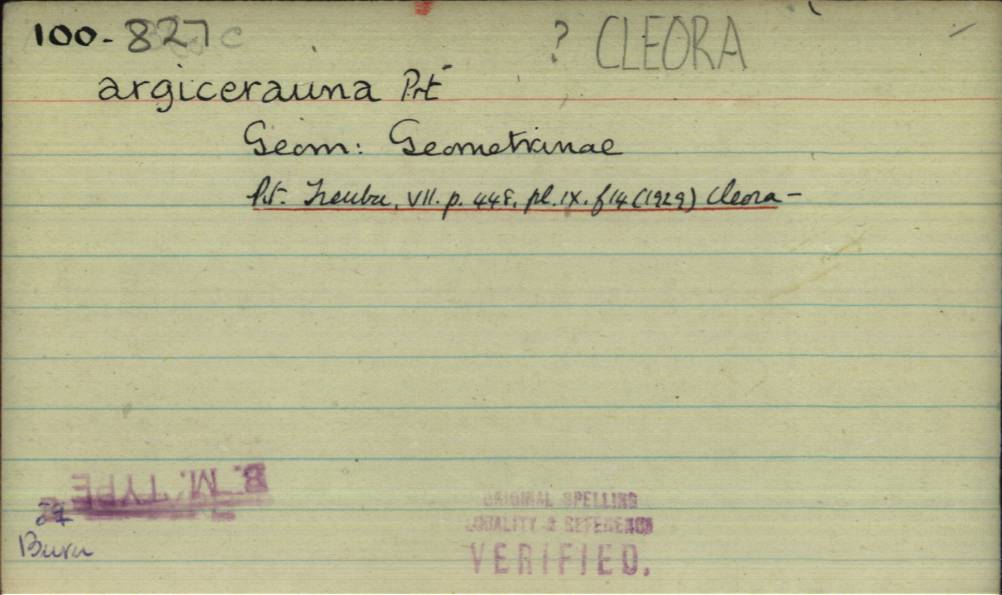 100-827c ? CLEORA
argicerauna Prt
Geom: Geometrinae
Prt. Treubia, VII. p. 448, pl. IX. f14 (1929) Cleora-
B. M. TYPE
Buru
ORIGINAL SPELLING
LOCALITY & REFERENCE
VERIFIED.